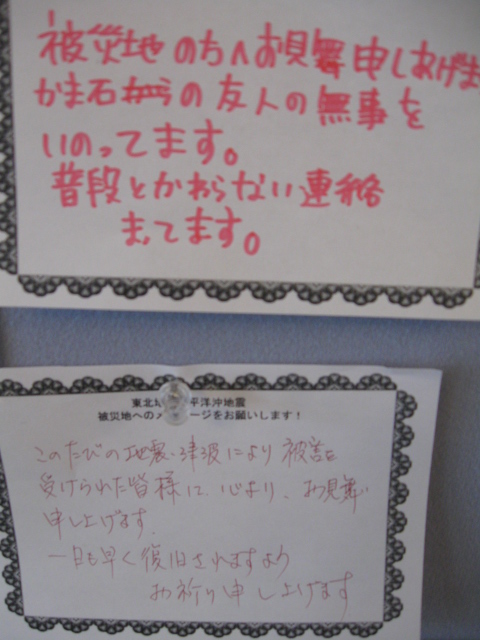 被災地の方へお見舞申しあげま
かま石からの友人の無事を
いのってます。
普段とかわらない連絡
まってます。
東北 平洋沖地震
被災地へのメ ージをお願いします！
このたびの地震・津波により被害を
受けられた皆様に、心より、お見舞
申し上げます。
一日も早く復旧されますよう
お祈り申し上げます